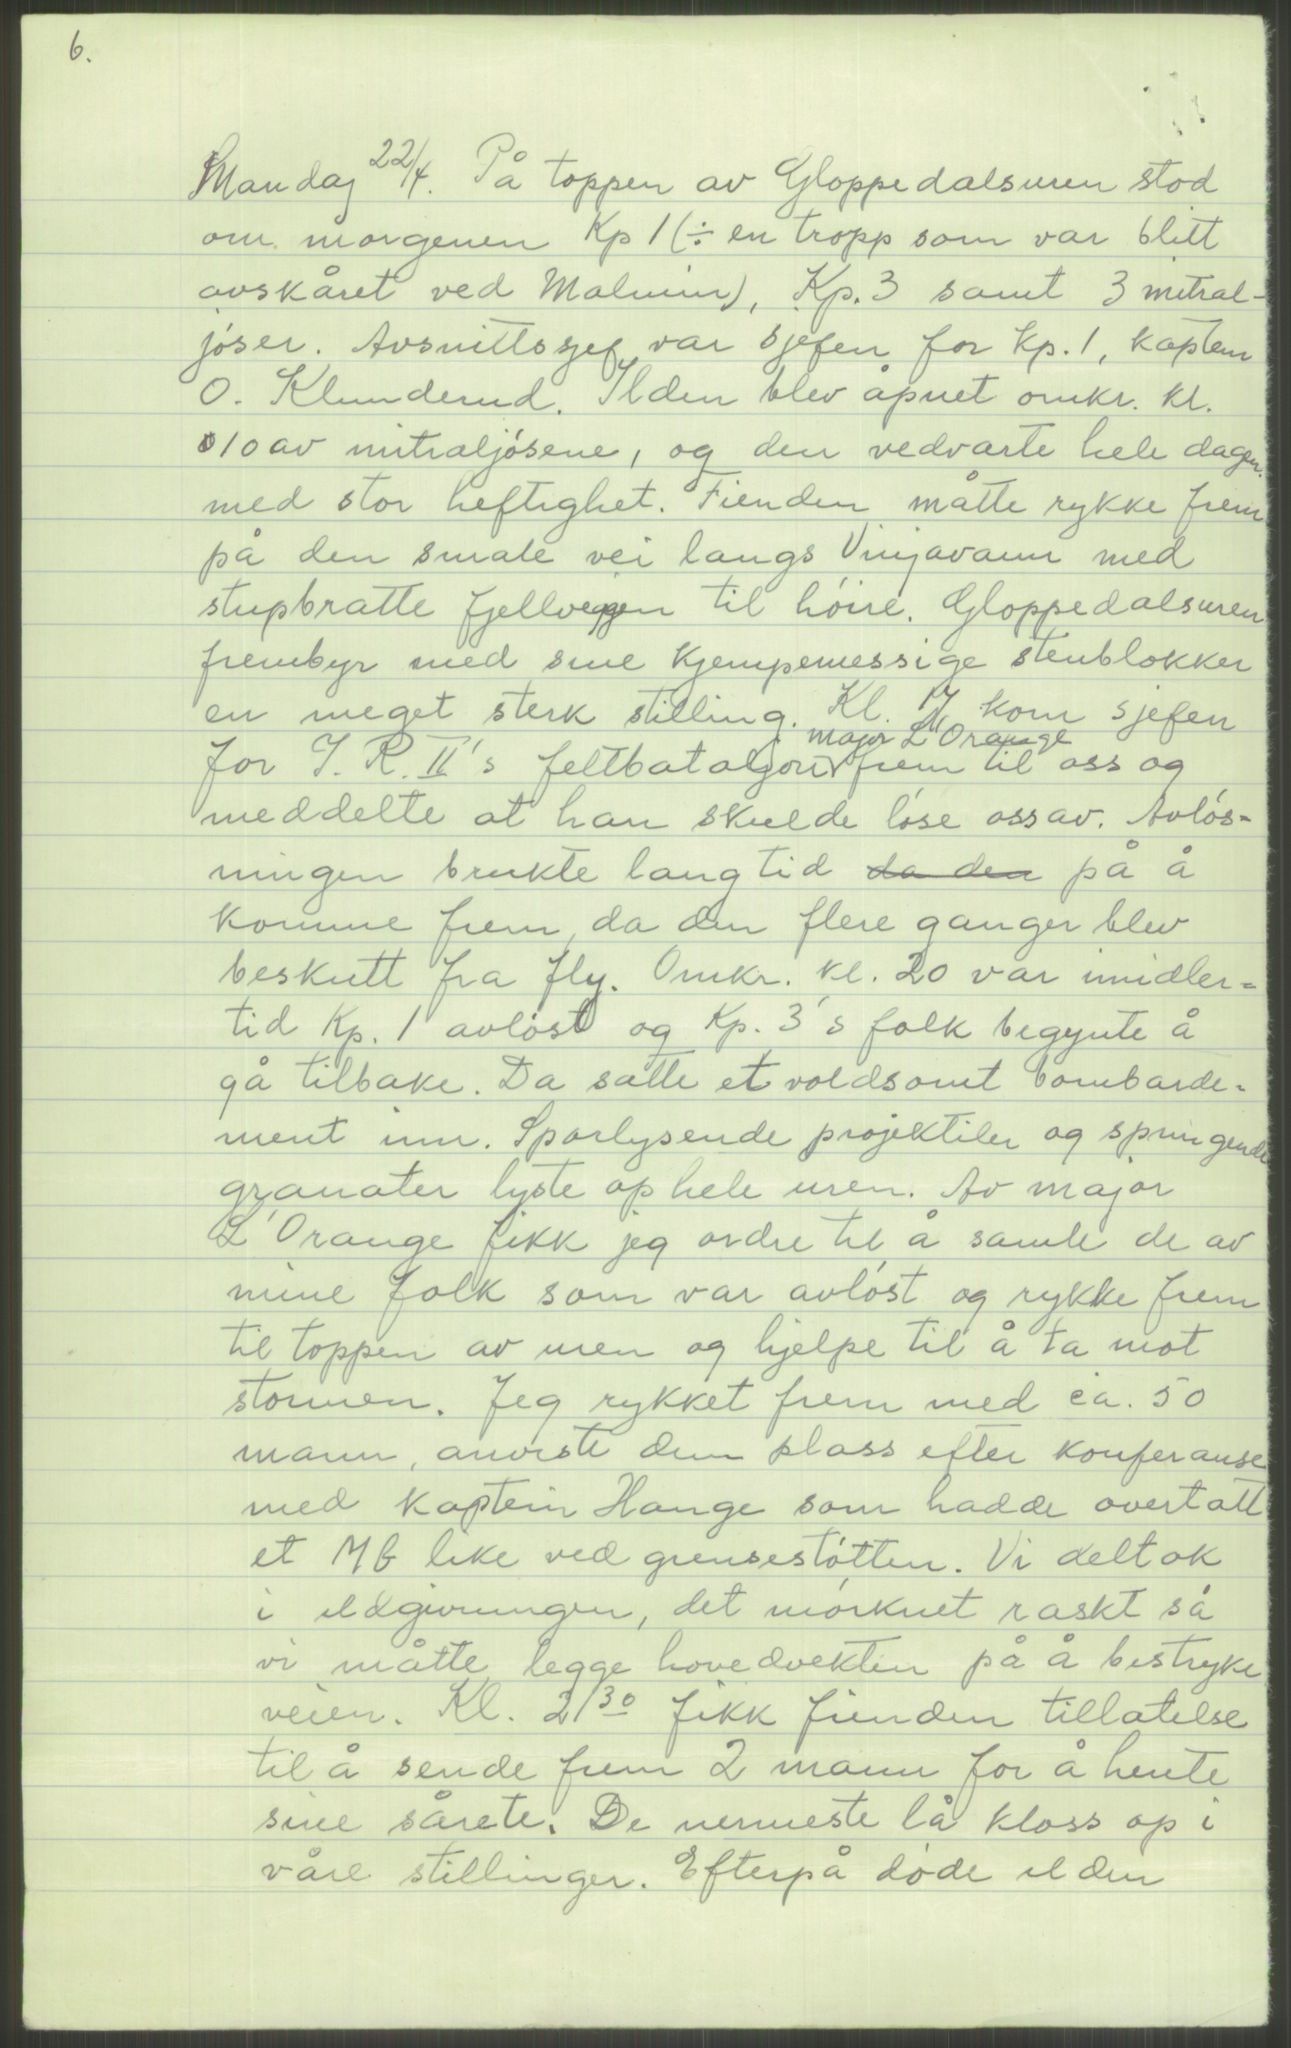 6.
Mandag 22/4. På toppen av Gloppedalsuren stod
om morgenen Kp 1 (÷ en tropp som var blitt
avskåret ved Malmin), Kp. 3 samt 3 mitral-
jøser. Avsnittssjef var sjefen for Kp. 1, kaptein
O. Klunderud. Ilden blev åpnet omkr. kl.
10 av mitraljøsene, og den vedvarte hele dagen
med stor heftighet. Fienden måtte rykke frem
på den smale vei langs Vinjavann med
stupbratte fjellveggen til høire. Gloppedalsuren
frembyr med sine kjempemessige stenblokker
en meget sterk stilling. Kl. 17 kom sjefen
major L'Orange
for I. R. II's feltbataljon frem til oss og
meddelte at han skulde løse oss av. Avløs-
ningen brukte lang tid da den på å
komme frem, da den flere ganger blev
beskutt fra fly. Omkr. kl. 20 var imidler-
tid Kp. 1 avløst og Kp. 3's folk begynte å
gå tilbake. Da satte et voldsomt bombarde-
ment inn. Sporlysende projektiler og springende
granater lyste op hele uren. Av major
L'Orange fikk jeg ordre til å samle de av
mine folk som var avløst og rykke frem
til toppen av uren og hjelpe til å ta mot
stormen. Jeg rykket frem med ca. 50
mann, anviste dem plass efter konferanse
med kaptein Hauge som hadde overtatt
et Mb like ved grensestøtten. Vi deltok
i ildgivningen, det mørknet raskt så
vi måtte legge hovedvekten på å bestryke
veien. Kl. 21 30 fikk fienden tillatelse
til å sende frem 2 mann for å hente
sine sårete. De nermeste lå kloss op i
våre stillinger. Efterpå døde ilden